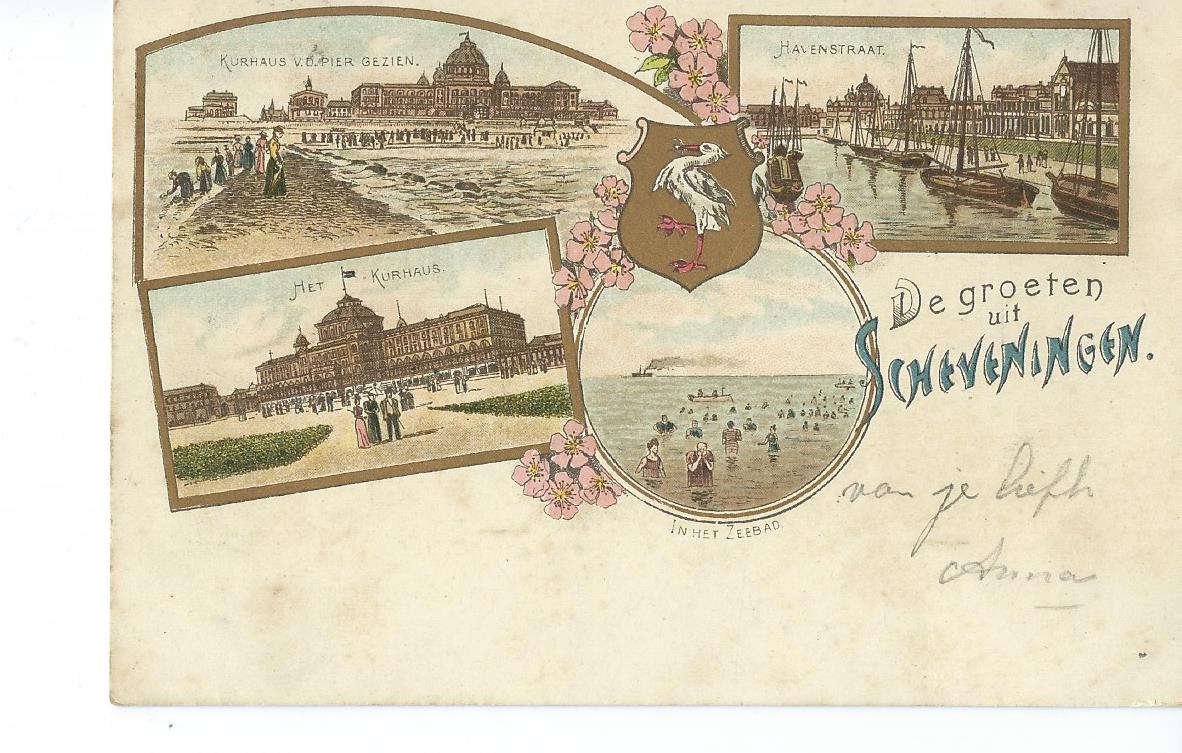 KURHAUS V.D. PIER GEZIEN.
HAVENSTRAAT.
HET KURHAUS.
De groeten
uit
SCHEVENINGEN.
IN HET ZEEBAD.
van je liefh
Anna